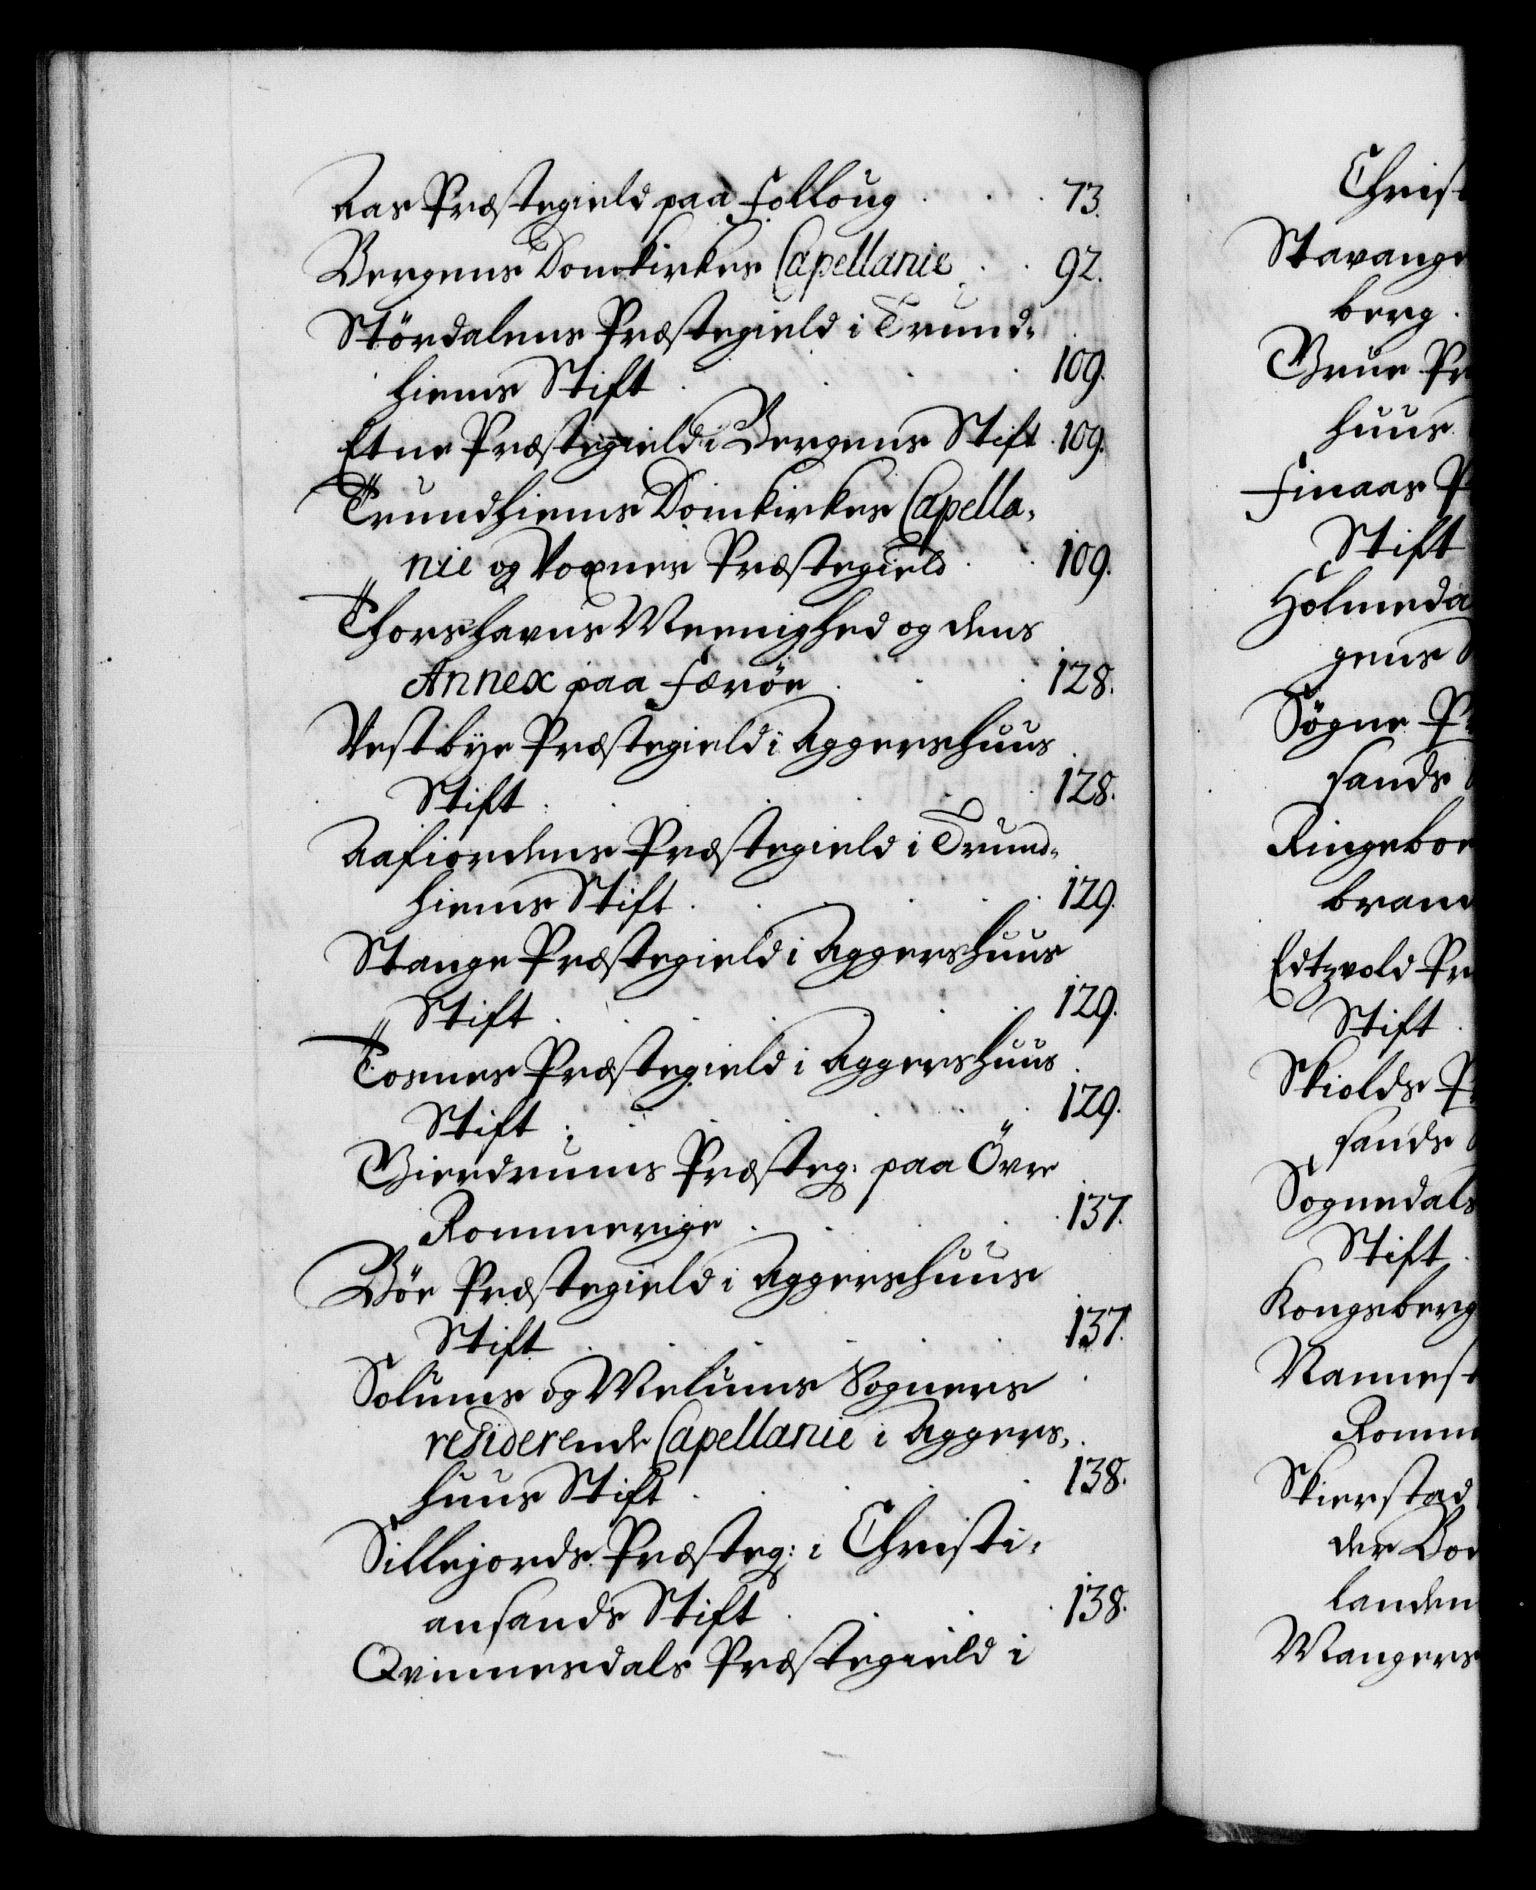 Aas Præstegield paa Folloug . . . 73.
Bergens Domkirkes Capellanie . . 92.
Stördalens Præstegield i Trund-
hiems Stift . . . . 109.
Etne Præstegield i Bergens Stift . 109.
Trundhiems Domkirkes Capella-
nie og Præstegield . . 109.
Thorshavns Meenighed og dens
Annex paa Færöe . . . 128.
Vestbye Præstegield i Aggershuus
Stift . . . . . 128.
Aafiordens Præstegield i Trund-
hiems Stift . . . . 129.
Stange Præstegield i Aggershuus
Stift . . . . . 129.
Præstegield i Aggershuus
Stift . . . . . 129.
Gierdrums Præsteg: paa Övre
Rommerige . . . . 137.
Böe Præstegield i Aggershuus
Stift . . . . . 137.
Solums og Melums Sogners
residerende Capellanie i Aggers-
huus Stift . . . . 138.
Sillejords Præsteg: i Christi-
ansands Stift . . . 138.
Qvinnesdals Præstegield i
Christ
Stavange
berg .
Grue Pr
huus
Finaas P
Stift
Holmeda
gens S
Sögne Pr
sands S
Ringeboe
brand
Edtzvold Pr
Stift .
Skiolds Pr
sands S
Sognedals
Stift .
Kongsberg
Nannest
Romm
Skierstad
der Bod
landen
Mangers